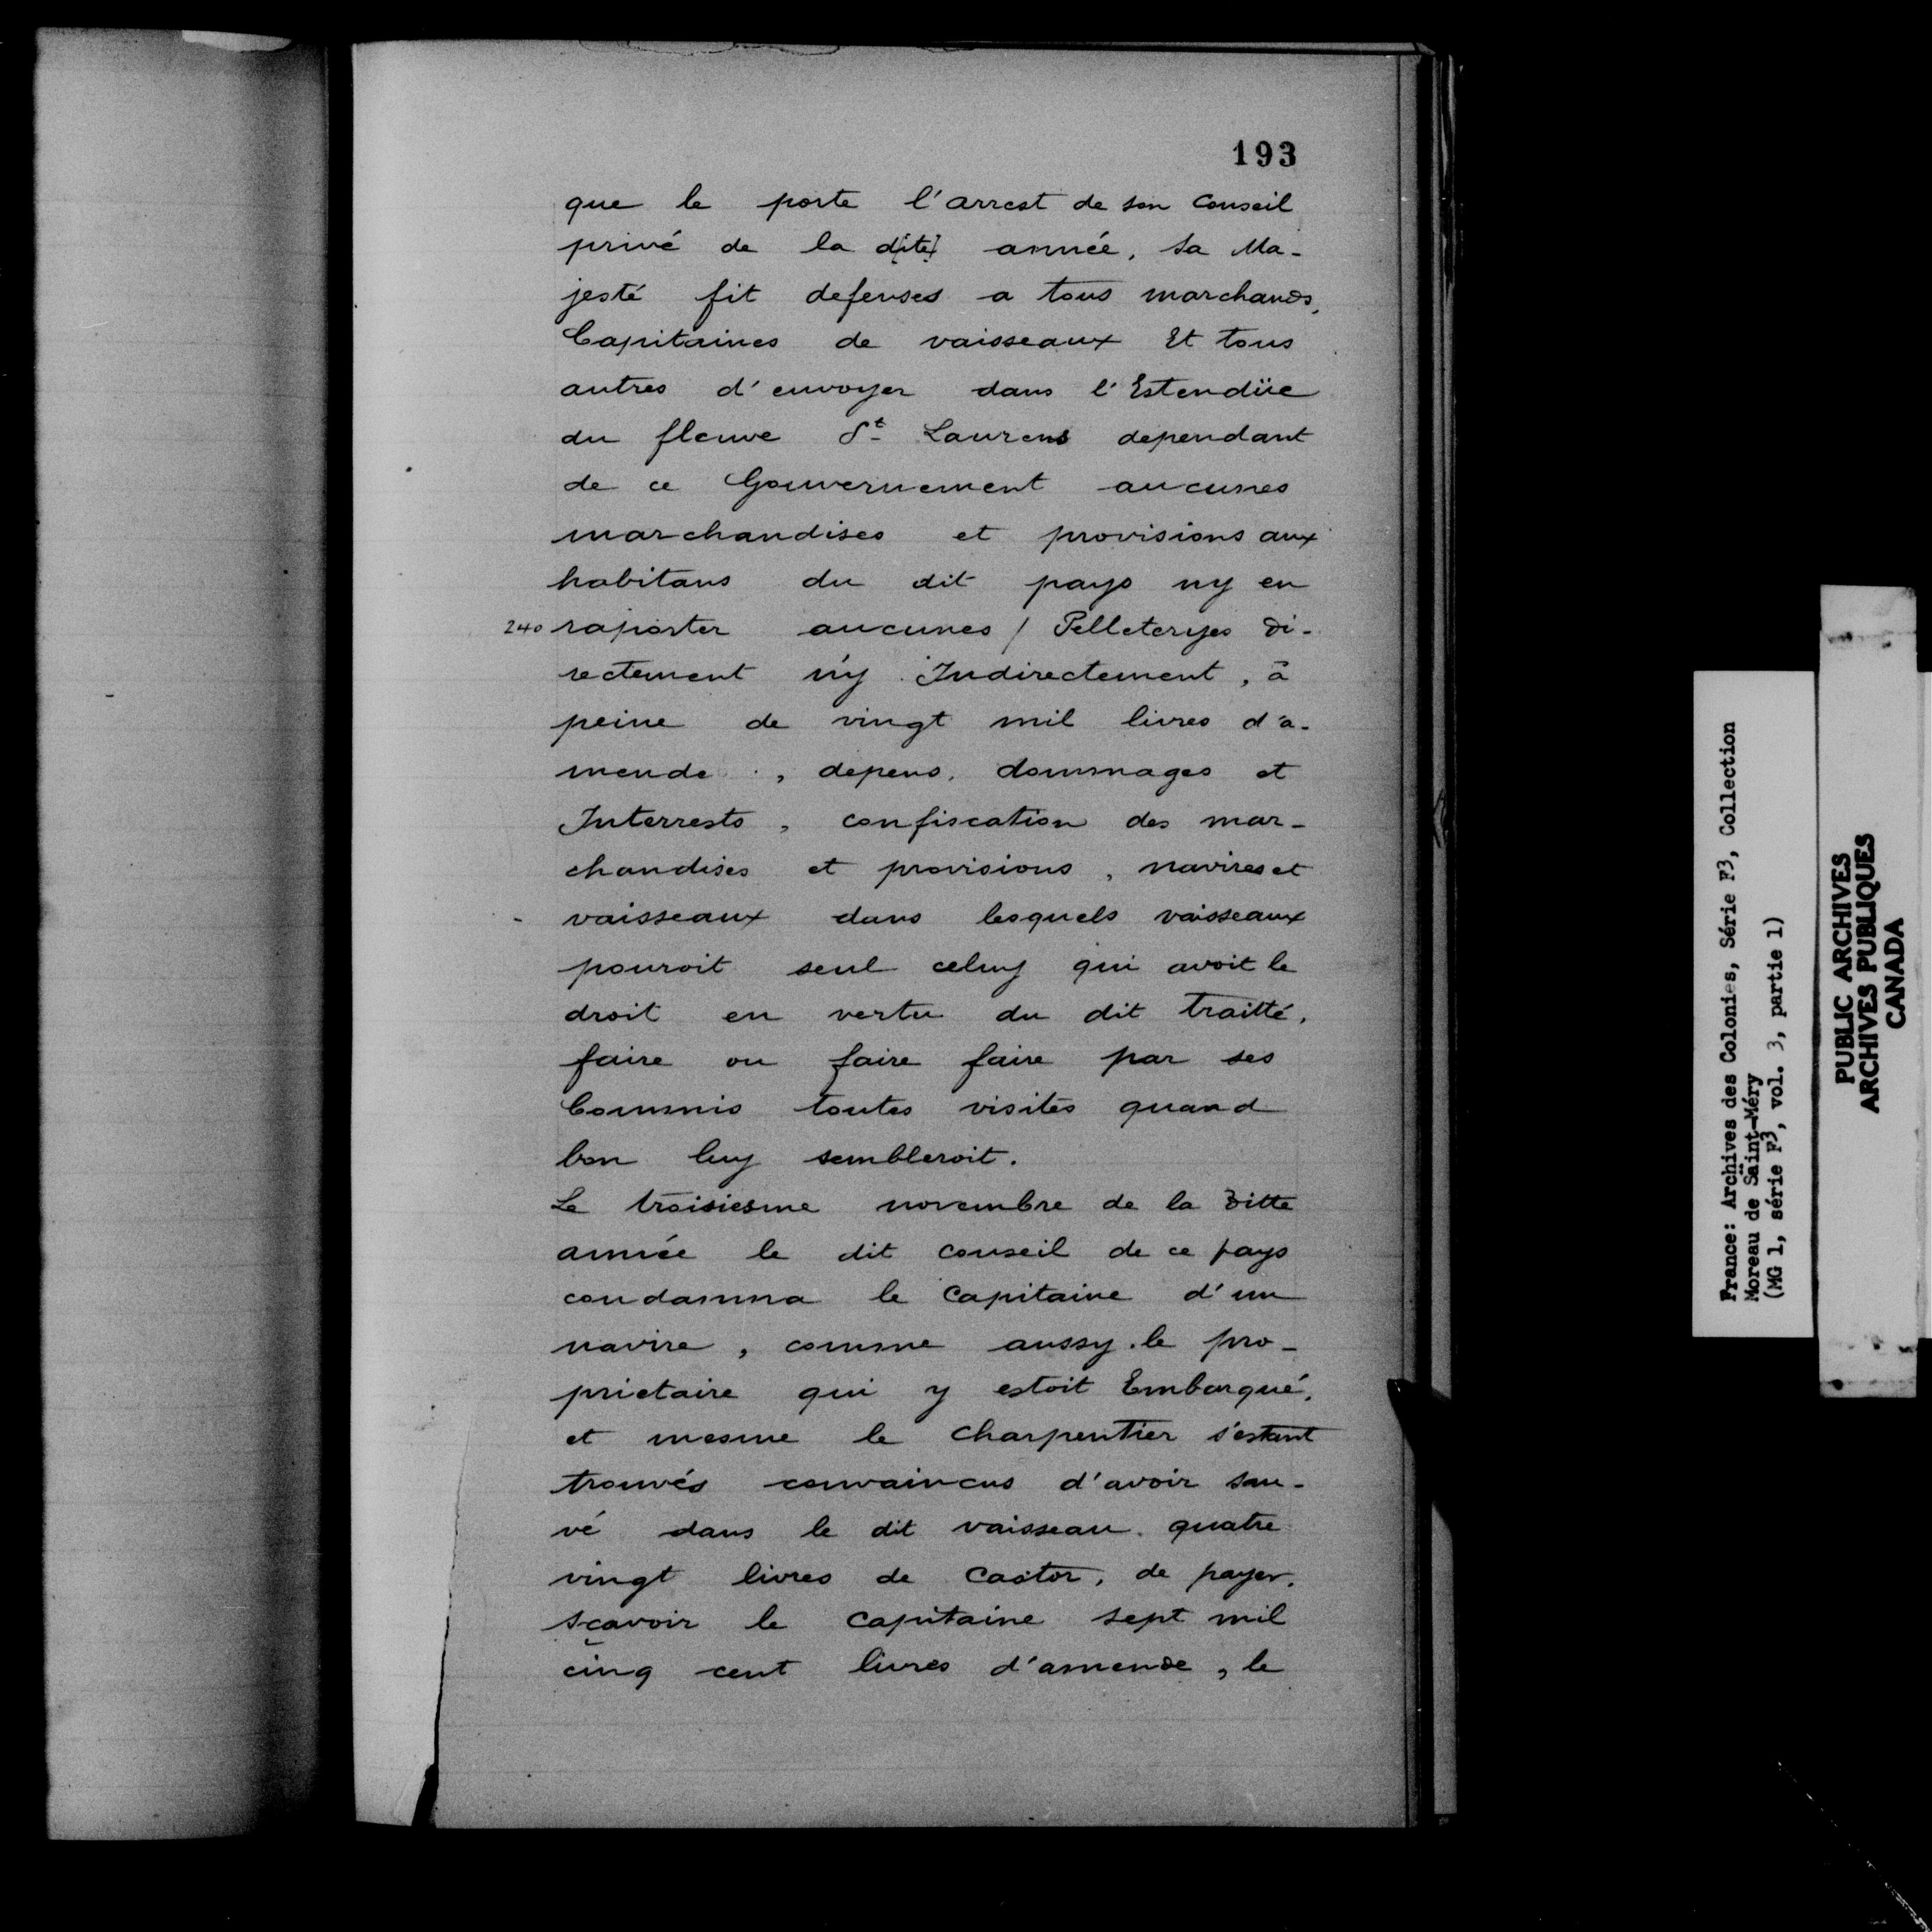 193
que le porte l'arrest de son Conseil
privé de la d[ite] année, sa Ma-
jesté fit defenses a tous marchands,
Capitaines de vaisseaux Et tous
autres d'envoyer dans l'Estendüe
du fleuve St Laurens dependant
de ce Gouvernement aucunes
marchandises et provisions aux
habitans du dit pays ny en
240 raporter aucunes / Pelleteryes di-
rectement ny Indirectement, à
peine de vingt mil livres d'a-
mende, depens, dommages et
Interrests, confiscation des mar-
chandises et provisions, navires et
vaisseaux dans lesquels vaisseaux
pouroit seul celuy qui avoit le
droit en vertu du dit traitté,
faire ou faire faire par ses
Commis toutes visites quand
bon luy sembleroit.
Le troisiesme novembre de la ditte
année le dit conseil de ce pays
condamna le Capitaine d'un
navire, comme aussy le pro-
prietaire qui y estoit Embarqué,
et mesme le charpentier s'estant
trouvés convaincus d'avoir sau-
vé dans le dit vaisseau quatre
vingt livres de Castor, de payer,
sçavoir le Capitaine sept mil
cinq cent livres d'amende, le
France: Archives des Colonies, Série F3, Collection
Moreau de Saint-Méry
(MG 1, série F3, vol. 3, partie 1)
PUBLIC ARCHIVES
ARCHIVES PUBLIQUES
CANADA